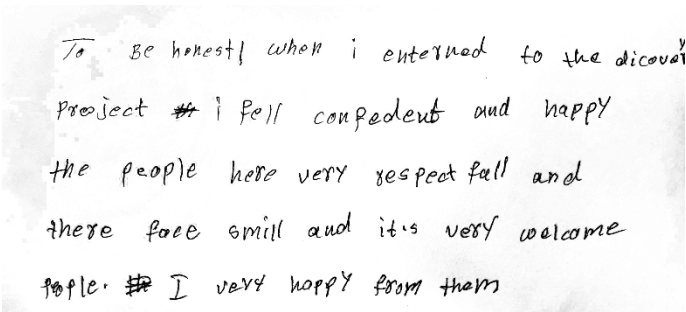 To Be honestly when i enterned to the dicovery
Project i fell confedent and happy
the people here very respect full and
there face smill and it's very welcome
people. I very happy from them